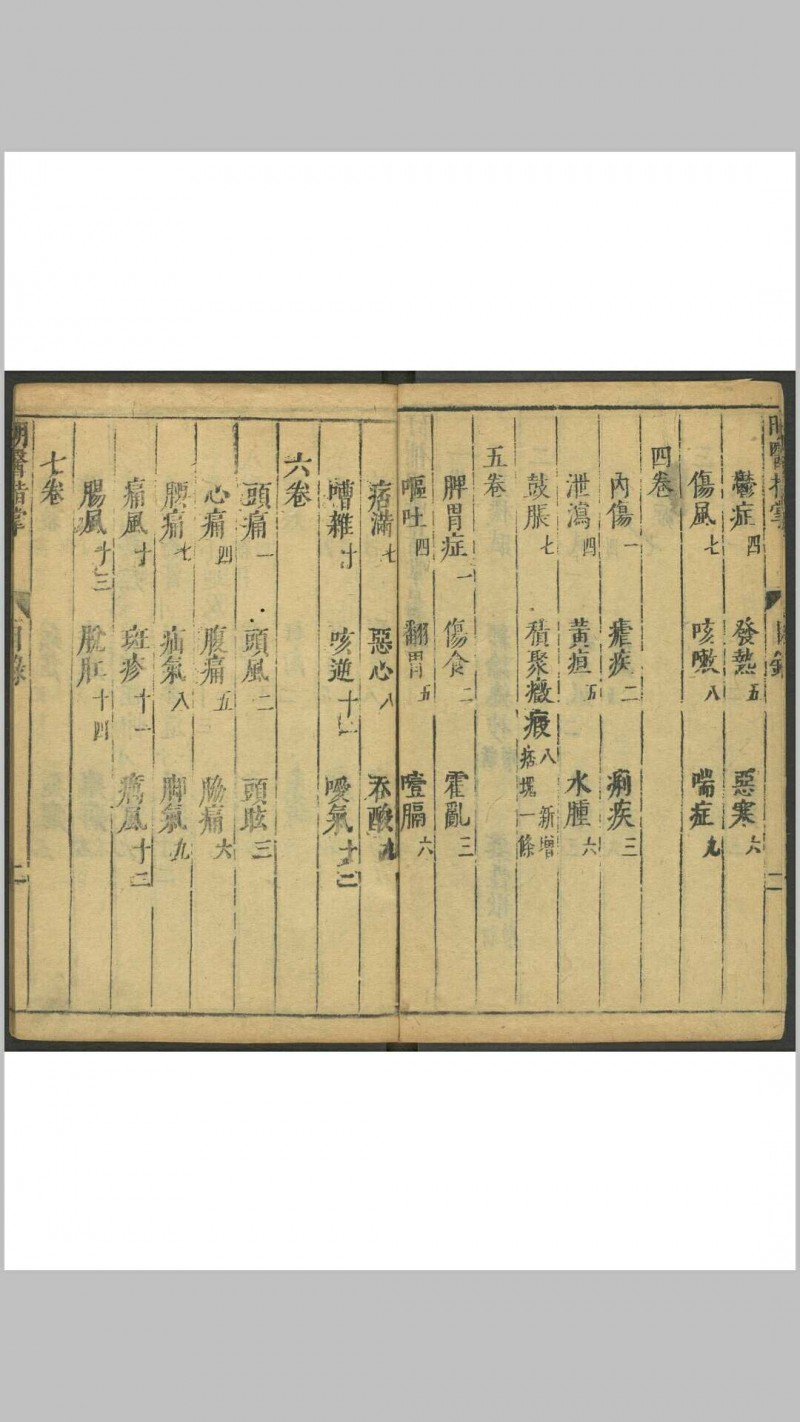 明醫指掌 目錄 二
鬱症四 發熱五 惡寒六
傷風七 咳嗽八 喘症九
四卷
內傷一 瘧疾二 痢疾三
泄瀉四 黃疸五 水腫六
鼓脹七 積聚癥瘕八 新增痞塊一條
五卷
脾胃症一 傷食二 霍亂三
嘔吐四 翻胃五 噎膈六
痞滿七 惡心八 吞酸九
嘈雜十 咳逆十一 噯氣十二
六卷
頭痛一 頭風二 頭眩三
心痛四 腹痛五 脇痛六
腰痛七 疝氣八 脚氣九
痛風十 斑疹十一 癘風十二
腸風十三 脫肛十四
七卷
明醫指掌 目錄 二